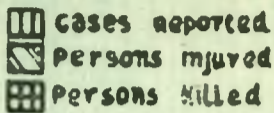 cases reported
Persons injured
Persons killed